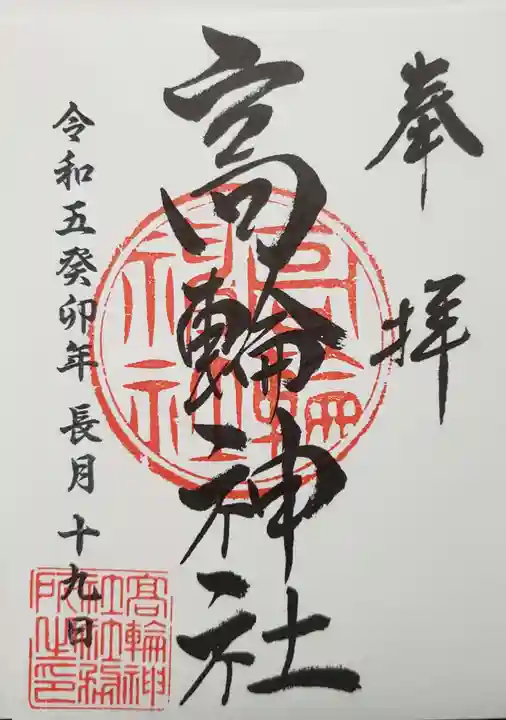 奉拝
高輪神社
令和五癸卯年 長月 十九日
高輪神社
高輪神社社務所之印